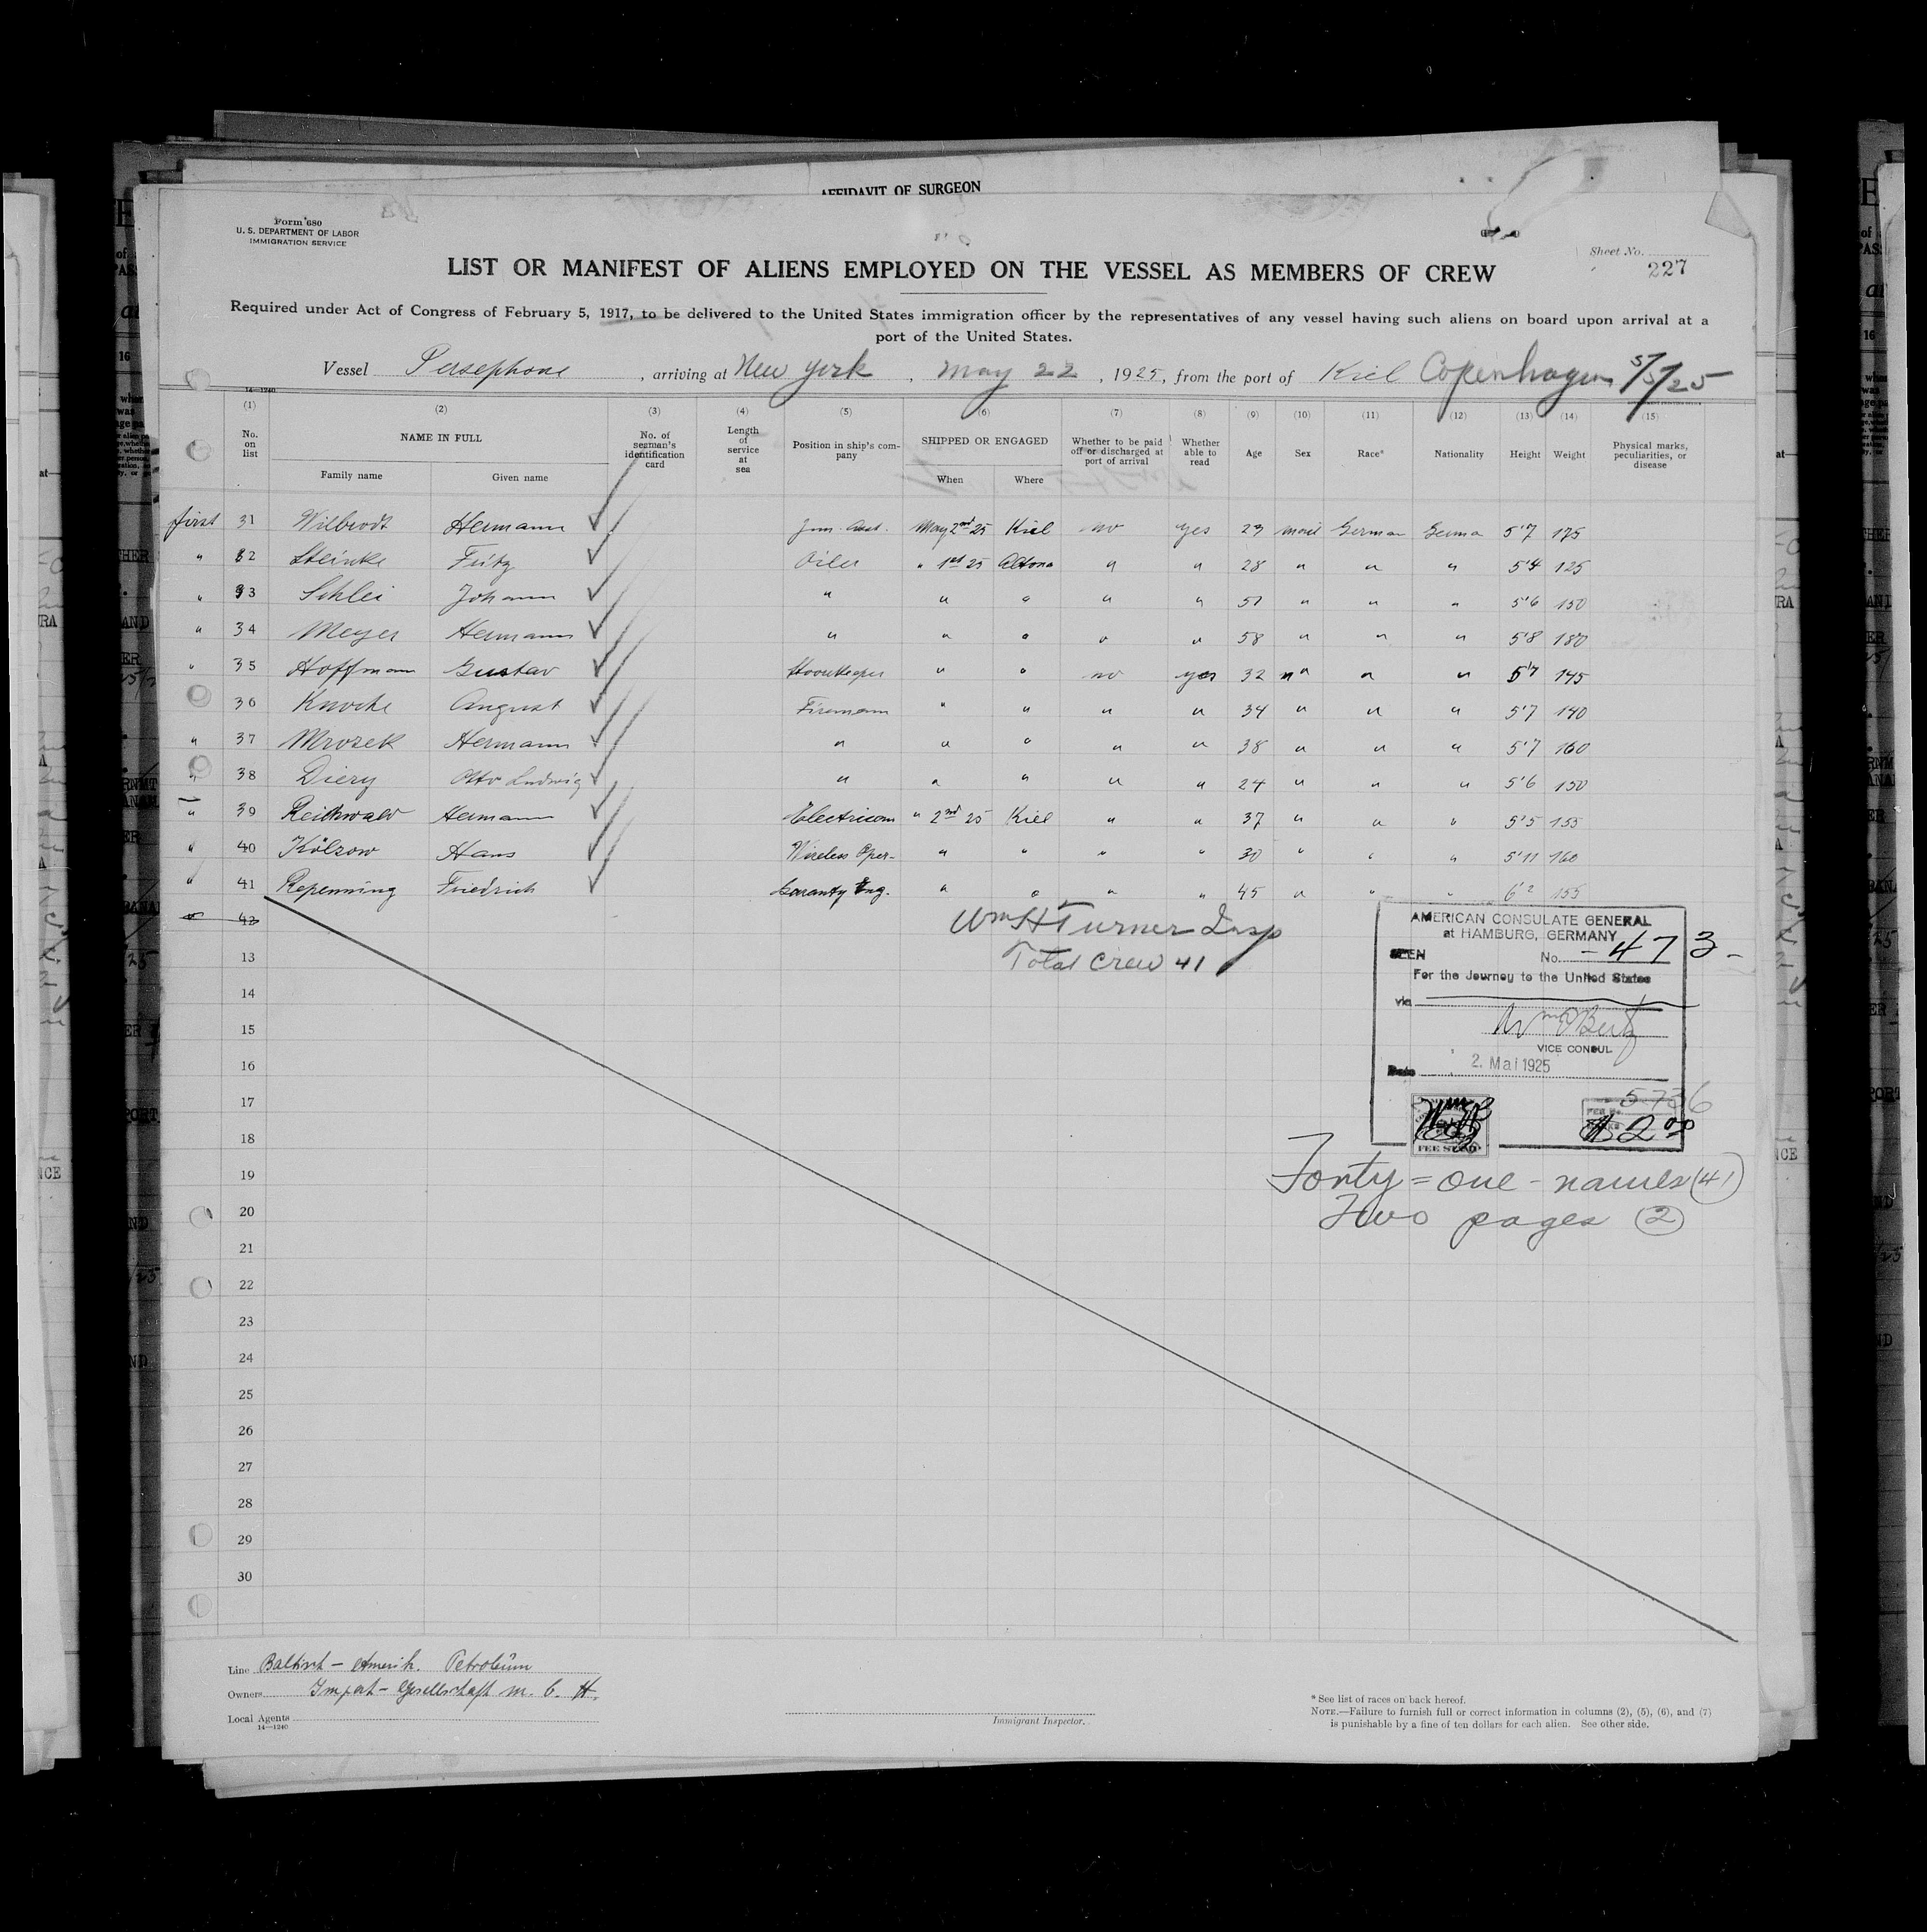 AFFIDAVIT OF SURGEON
Form 680
U. S. DEPARTMENT OF LABOR
IMMIGRATION SERVICE
Sheet No.
227
LIST OR MANIFEST OF ALIENS EMPLOYED ON THE VESSEL AS MEMBERS OF CREW
Required under Act of Congress of February 5, 1917, to be delivered to the United States immigration officer by the representatives of any vessel having such aliens on board upon arrival at a
port of the United States.
Vessel Persephone, arriving at New York, May 22, 1925, from the port of Kiel Copenhagen 5/5/25
14—1240
(1) (2) (3) (4) (5) (6) (7) (8) (9) (10) (11) (12) (13) (14) (15)
No. on list NAME IN FULL Family name Given name No. of seaman's identification card Length of service at sea Position in ship's company SHIPPED OR ENGAGED When Where Whether to be paid off or discharged at port of arrival Whether able to read Age Sex Race* Nationality Height Weight Physical marks, peculiarities, or disease
first 31 Wilbrodt Hermann ✓ Jun. Asst. May 2nd 25 Kiel no yes 29 male German Germa 5'7 175
" 32 Steinke Fritz ✓ Oiler " 1st 25 Altona " " 28 " " " 5'4 125
" 33 Schlei Johann ✓ " " " " " 51 " " " 5'6 150
" 34 Meyer Hermann ✓ " " " " " 58 " " " 5'8 180
" 35 Hoffmann Gustav ✓ Storekeeper " " no yes 32 " " " 5'7 145
36 Knoche August ✓ Firemann " " " " 34 " " " 5'7 140
" 37 Mrozek Hermann ✓ " " " " " 38 " " " 5'7 160
" 38 Diery Otto Ludwig ✓ " " " " " 24 " " " 5'6 150
" 39 Reichwald Hermann ✓ Electrician " 2nd 25 Kiel " " 37 " " " 5'5 155
" 40 Kölzow Hans ✓ Wireless Oper- " " " " 30 " " " 5'11 160
" 41 Repenning Friedrich ✓ Garanty Eng. " " " " 45 " " " 6'2 155
" 42
Wm H Turner Insp
Total Crew 41
13
14
15
16
17
18
19
20
21
22
23
24
25
26
27
28
29
30
AMERICAN CONSULATE GENERAL
at HAMBURG, GERMANY
SEEN No. -473-
For the Journey to the United States
via
VICE CONSUL
Date 2. Mai 1925
5736
FEE No.
$2.00
FEE STAMP
Forty=one-names (41)
Two pages (2)
Line Baltisch-Amerik. Petroleum
Owners Import-Gesellschaft m. b. H.
Local Agents
14—1240
Immigrant Inspector.
* See list of races on back hereof.
NOTE.—Failure to furnish full or correct information in columns (2), (5), (6), and (7)
is punishable by a fine of ten dollars for each alien. See other side.